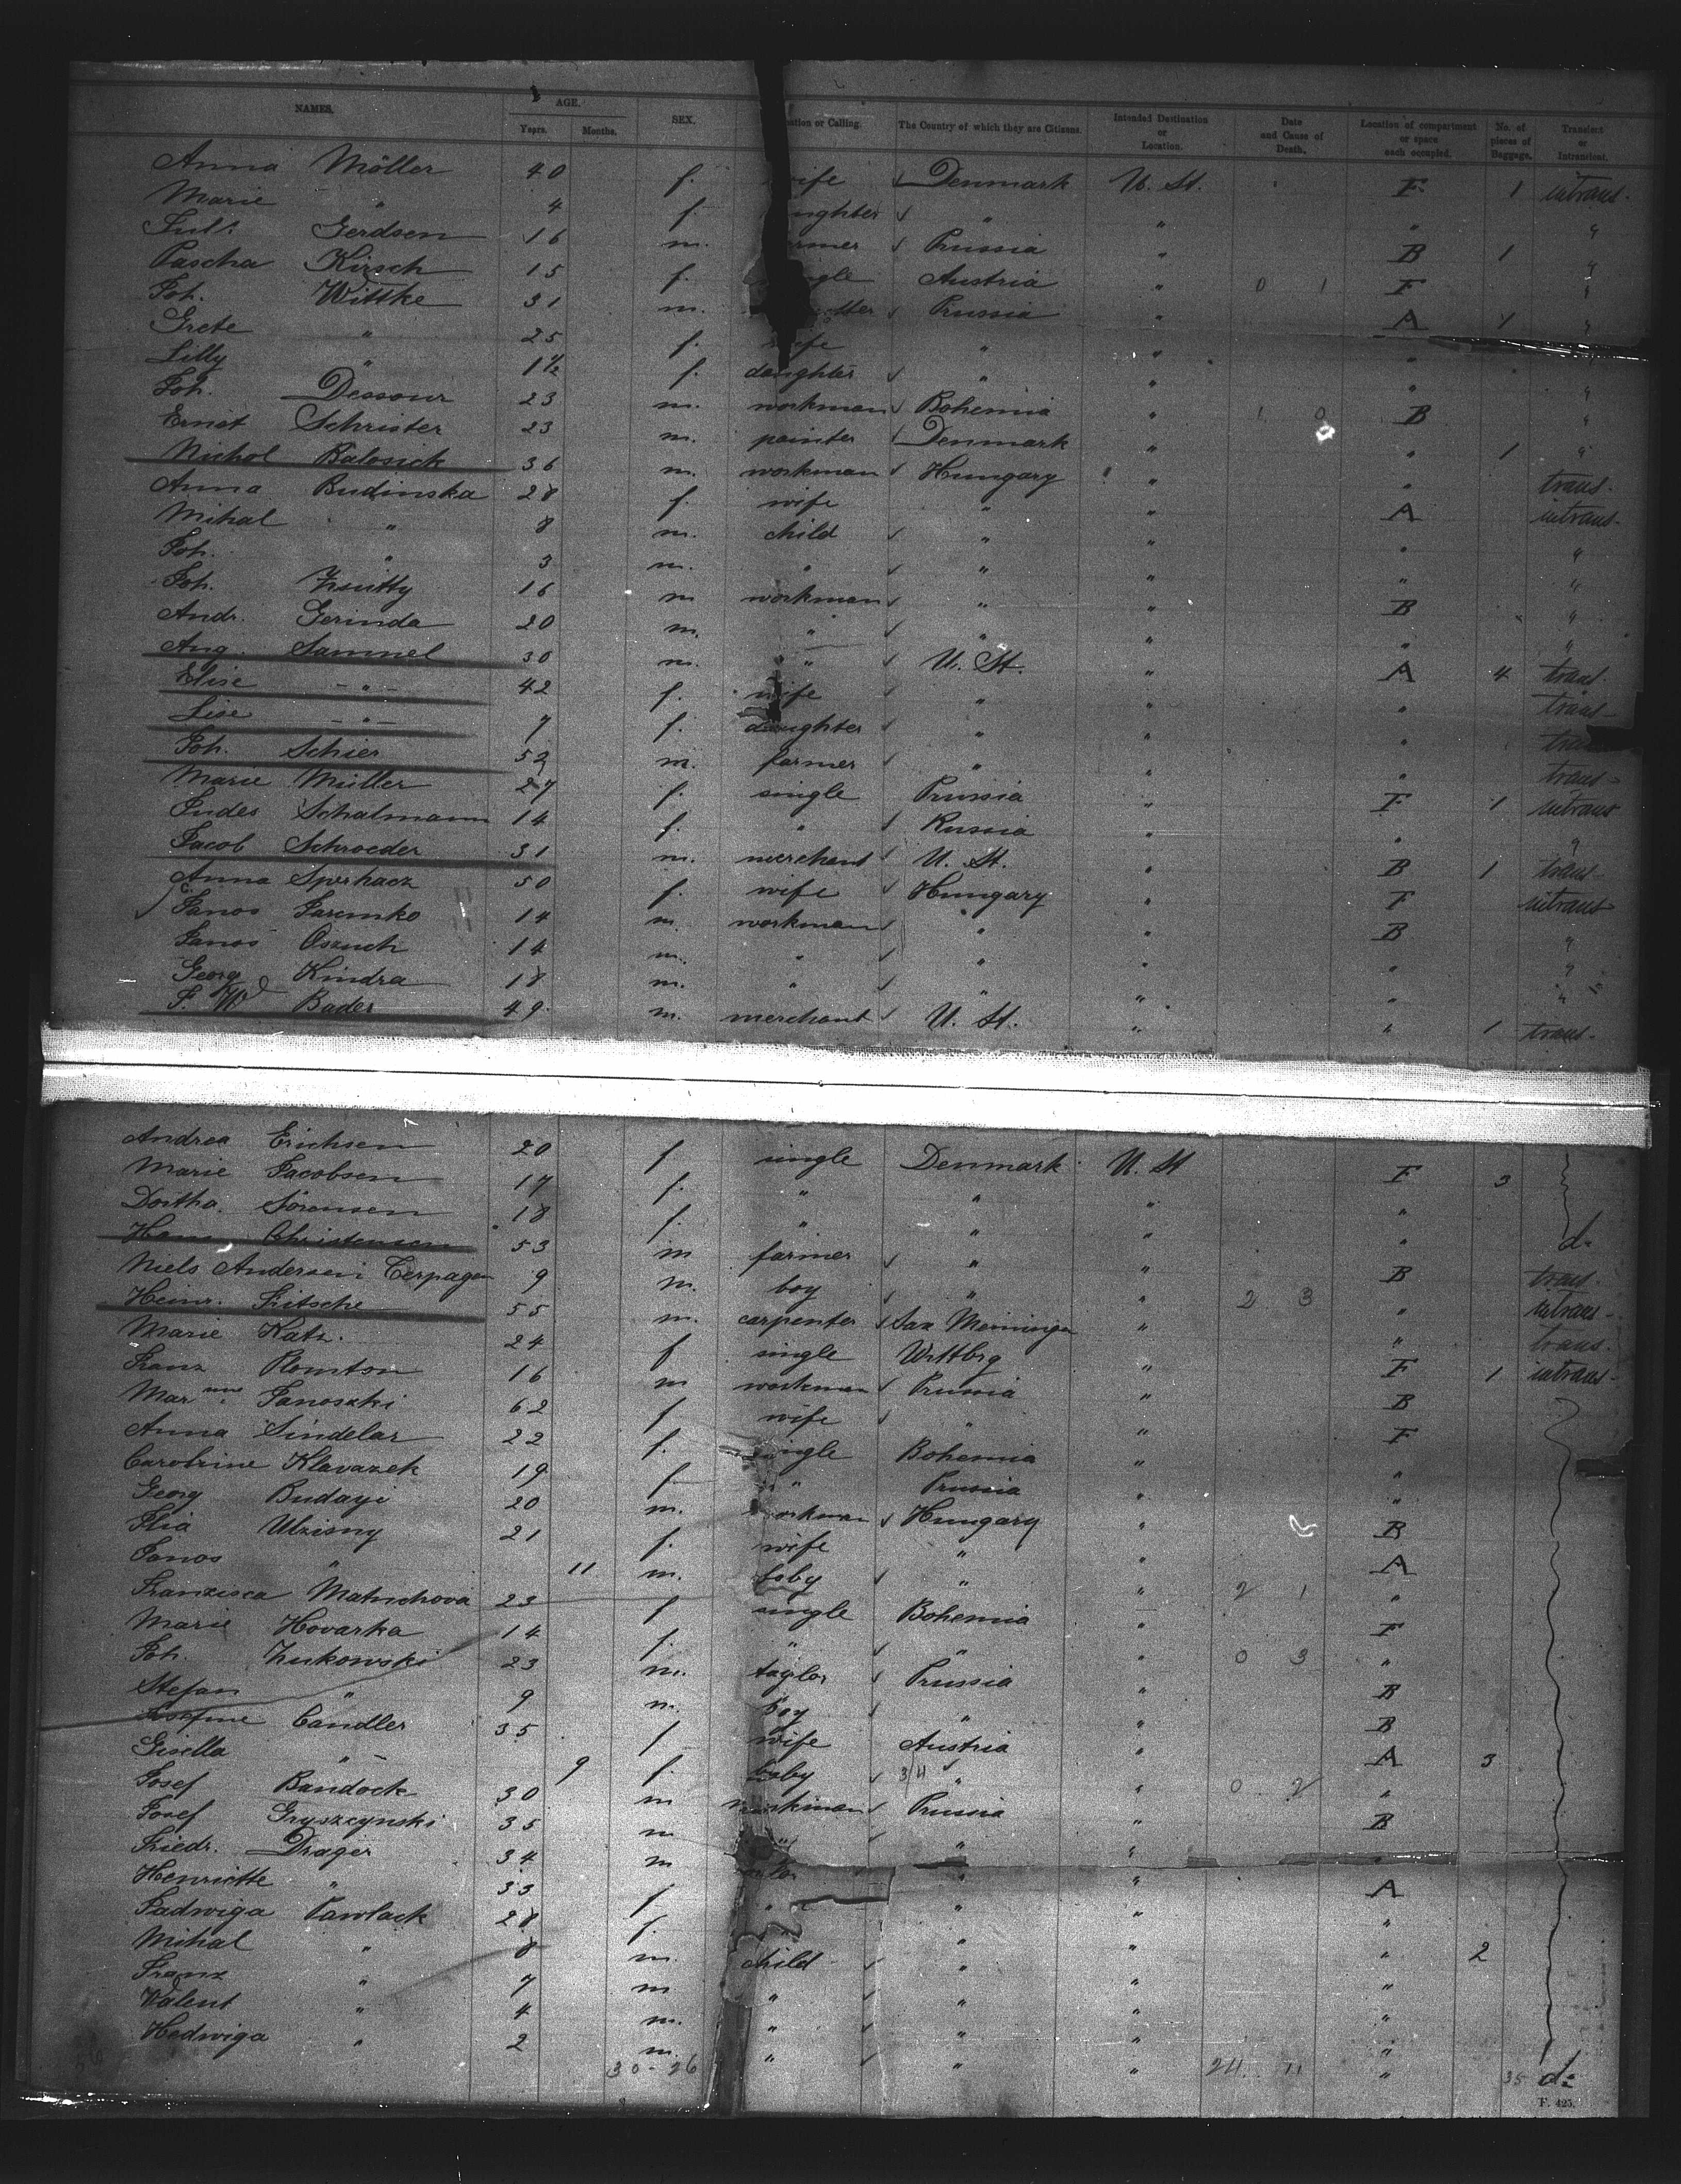 NAMES. AGE. Years. Months. SEX. ation or Calling. The Country of which they are Citizens. Intended Destination or Location. Date and Cause of Death. Location of compartment or space each occupied. No. of pieces of Baggage. Transient or Intransient.
Anna Möller 40 f. ife Denmark U. St. F. 1 intrans.
Marie " 4 f. ughter " " " "
Jul. Gerdsen 16 m. rmer Prussia " B 1 "
Pascha Kirsch 15 f. ngle Austria " 0 1 F "
Joh. Wittke 31 m. tter Prussia " A 1 "
Grete " 25 f. wife " " "
Lilly " 1½ f. daughter " " " "
Joh. Dessour 23 m. workman Bohemia " 1 0 B "
Ernst Schrister 23 m. painter Denmark " " 1 "
Michol Balosick 36 m. workman Hungary " " trans.
Anna Budinska 28 f. wife " " A intrans.
Mihal " 8 m. child " " " "
Joh. " 3 m. " " " " "
Joh. 16 m workman " " B "
Andr. Gerinda 20 m. " " " " "
Aug. Sammel 30 m. " U. St. " A 4 trans.
Elise -"- 42 f. wife " " " trans-
Lise -"- 7 f. daughter " " " trans
Joh. Schier 52 m. farmer " " " trans-
Marie Müller 27 f. single Prussia " F 1 intrans
Judes Schalmann 14 f. " Russia " " "
Jacob Schroeder 31 m. merchant U. St. " B 1 trans-
Anna Sperhacz 50 f. wife Hungary " F intrans
Janos Jaremko 14 m. workman " " B "
Janos Oszuch 14 m. " " " " "
Georg Kindra 18 m. " " " " "
F. Wd Bader 49. m. merchant U. St. " " 1 trans-
Andrea Erichsen 20 f single Denmark U. St F 3
Marie Jacobsen 17 f. " " " "
Dortha. Sörensen 18 f. " " " " d-
Hans Christensen 53 m farmer " " B trans.
Niels Andersen Terpagen 9 m. boy " " 2 3 " intrans-
Heinr. Fritsche 55 m. carpenter Sax Meiningen " " trans.
Marie Katz. 24 f single Wrttbrg " F 1 intrans-
Franz Plomton 16 m workman Prussia " B
Mar nne. Janoszki 62 f wife " " F
Anna Sindelar 22 f. single Bohemia " "
Carobrine Klavazek 19 f " Prussia " "
Georg Budayi 20 m. workman Hungary " B
Ilia Ulzisny 21 f. wife " " A
Janos " 11 m. baby " " 2 1 "
Franzisca Matuchova 23 f single Bohemia " F
Marie Hovarka 14 f. " " " 0 3 "
Joh. Zukowski 23 m. taylor Prussia " B
Stefan " 9 m. boy " " B
Josefine Candler 35 f wife Austria " A 3
Gisella " 9 f. baby 3/4 " " 0 2 "
Josef Bandock 30 m workman Prussia " B
Josef Gryszcynski 35 m " " " "
Friedr. Drager 34 m " " A
Henriette " 33 f " " " "
Jadwiga Pawlack 28 f. " " " 2
Mihal " 8 m. child " " "
Franz " 7 m " " " "
Valent " 4 m. " " " "
Hedwiga " 2 m. " " " "
30-26 24 11 35 d:
F. 425.